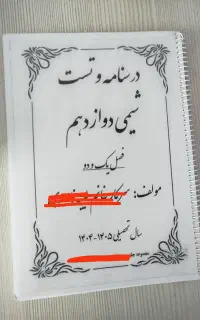 درسنامه و تست
شیمی دوازدهم
فصل یک و دو
مؤلف: سرکار خانم
سال تحصیلی ۱۴۰۵-۱۴۰۴